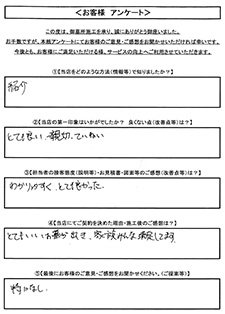 ＜お客様 アンケート＞
この度は、御墓所施工を承り、誠にありがとう御座いました。
お手数ですが、本紙アンケートにてお客様のご意見・ご感想をお聞かせいただければ幸いです。
今後とも、お客様にご満足いただける様、サービスの向上へご利用させていただきます。
①【当店をどのような方法（情報等）で知りましたか？】
紹介
②【当店の第一印象はいかがでしたか？ 良くない点（改善点等）は？】
とても良い 親切、ていねい
③【担当者の接客態度（説明等）・お見積書・図案等のご感想（改善点等）は？】
わかりやすく とても良かった。
④【当店にてご契約を決めた理由・施工後のご感想は？】
とてもいいお墓が出来、家族みんな満足してます。
⑤【最後にお客様のご意見・ご感想をお聞かせください。（ご提案等）】
特になし。